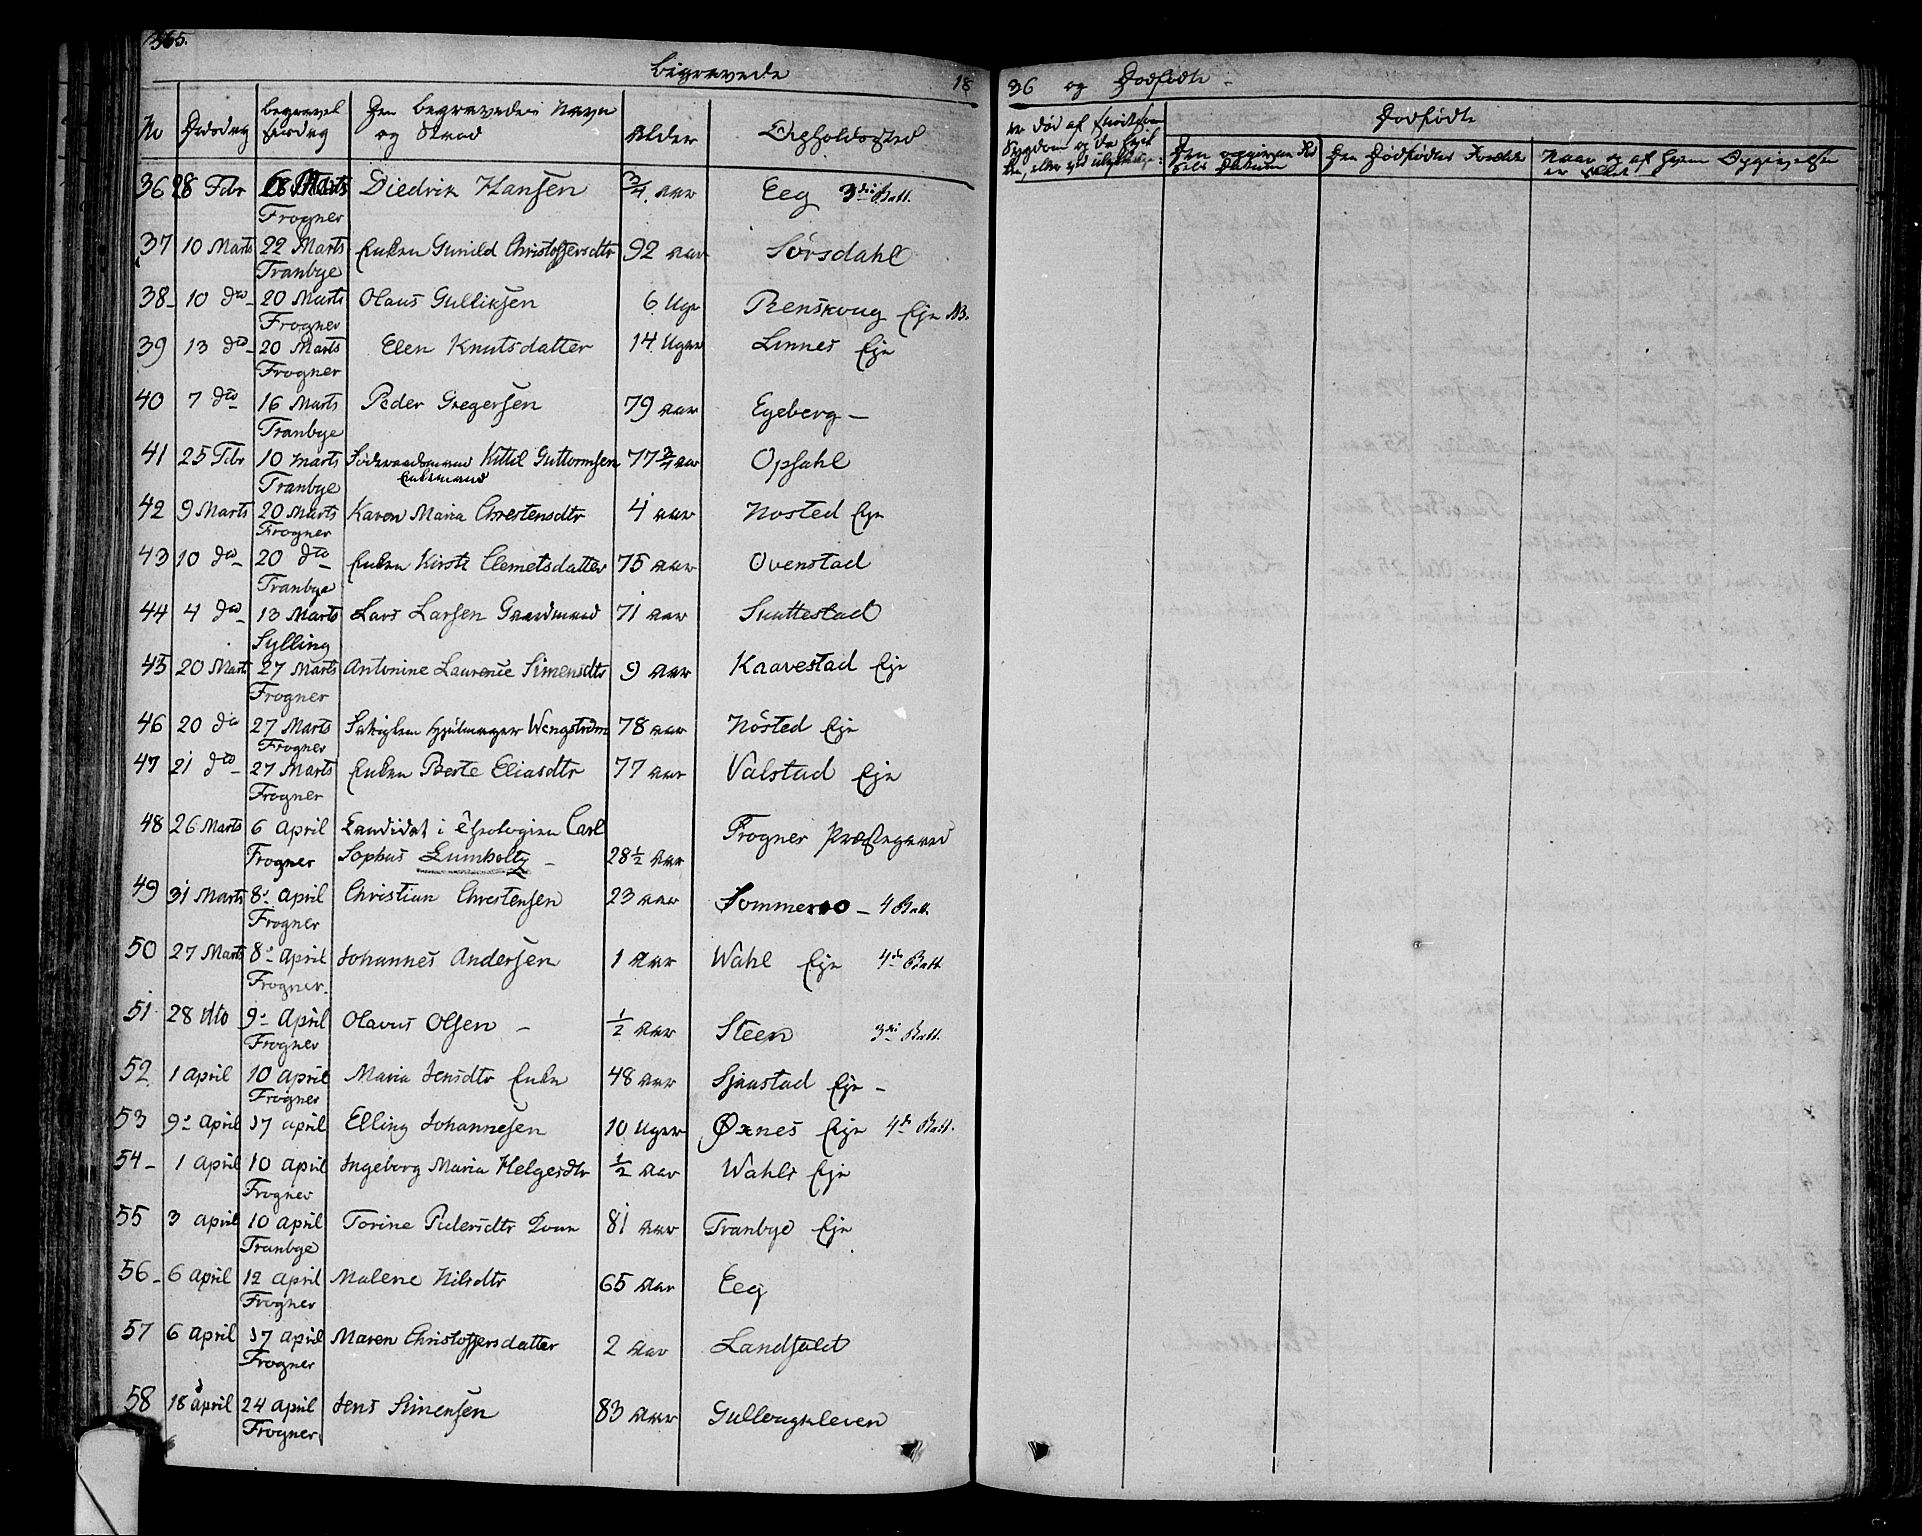 365.
Begravede 18
No Dødsdag Begravelsesdag Den begravedes Navn og Stand Alder Opholdssted
36 28 Febr 6 Marts Diedrik Hansen 3/4 aar Eeg 3die Batt.
Frogner
37 10 Marts 22 Marts Enken Gunild Christophersdtr 92 aar Sörsdahl
Tranbye
38 10 dto 20 Marts Olaus Gulliksen 6 Uger Renskoug Eje
Frogner
39 13 dto 20 Marts Elen Knutsdatter 14 Uger Linnes Eje
Frogner
40 7 dto 16 Marts Peder Gregersen 79 aar Egeberg
Tranbye
41 25 Febr 10 Marts Föderaadsmand Kittil Guttormsen 77 3/4 aar Opsahl
Tranbye Enkemand
42 9 Marts 20 Marts Karen Maria Chrestensdtr 4 aar Nosted Eje
Frogner
43 10 dto 20 dto Enken Kirsti Clemetsdatter 75 aar Ovenstad
Tranbye
44 4 dto 13 Marts Lars Larsen Gaardmand 71 aar
Sylling
45 20 Marts 27 Marts Antonine Laurense Simensdtr 9 aar Kaavestad Eje
Frogner
46 20 dto 27 Marts Hjulmager Wengström 78 aar Nösted Eje
Frogner
47 21 dto 27 Marts Enken Berte Eliasdtr 77 aar Valstad Eje
Frogner
48 26 Marts 6 April Candidat i Theologien Carl Frogner Præstegaard
Frogner Sophus Lumholtz 28 1/2 aar
49 31 Marts 8 April Christian Chrestensen 23 aar Sommeroo 4 Batt.
Frogner
50 27 Marts 8 April Johannes Andersen 1 aar Wahl Eje 4de Batt
Frogner
51 28 dto 9 April Olavus Olsen ½ aar Steen 3die Batt.
Frogner
52 1 April 10 April Maria Jensdtr Enke 48 aar Sjaastad Eje
Frogner
53 9 April 17 April Elling Johannesen 10 Uger Öxnes Eje 4de Batt.
54 1 April 10 April Ingeborg Maria Helgesdtr ½ aar Wahls Eje
Frogner
55 3 April 10 April Torine Pedersdtr 81 aar Tranbye Eje
Tranbye
56 6 April 12 April Malene Nilsdtr 65 aar Eeg
Frogner
57 6 April 17 April Maren Christophersdatter 2 aar Landfald
Frogner
58 18 April 24 April Jens Simensen 83 aar Gullougkleven
Frogner
36 og Dødfødte
Dødfødte